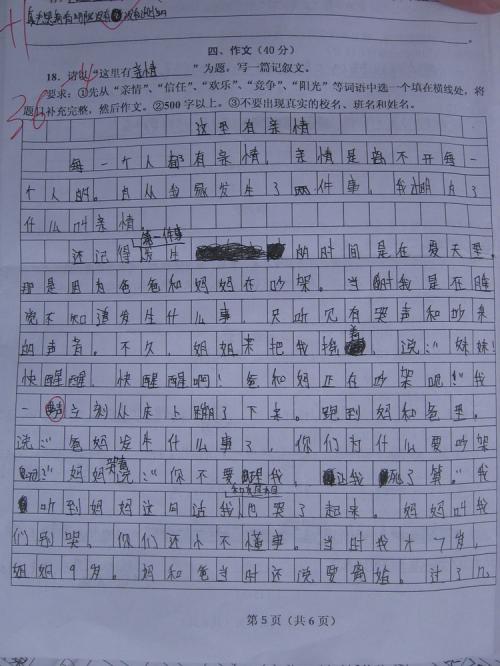 四、作文（40 分）
18. 请以“这里有亲情”为题，写一篇记叙文。
要求：①先从“亲情”、“信任”、“欢乐”、“竞争”、“阳光”等词语中选一个填在横线处，将
题目补充完整，然后作文。②500 字以上。③不要出现真实的校名、班名和姓名。
这里有亲情
每一个人都有亲情，亲情是离不开每一
个人的。自从我家发生了两件事，我才明白了
什么叫亲情
第一件事
还记得发生的时间是在夏天里
那是因为爸爸和妈妈在吵架。当时我是在睡
觉不知道发生什么事，只听见有哭声和吵架
的声音。不久，姐姐来把我摇着，说：“妹妹！
快醒醒，快醒醒啊！爸和妈正在吵架呢！”我
一听立刻从床上蹦了下来。跑到妈和爸里。
说：“爸妈发生什么事了，你们为什么要吵架
妈妈哭着说：“你不要理我，让我死了算。”我
和姐姐
听到妈妈这句话我哭了起来。妈妈叫我
们别哭，你们还小不懂事。当时我才7岁，
姐姐9岁。妈和爸当时还说要离婚。过了几
第 5 页（共 6 页）